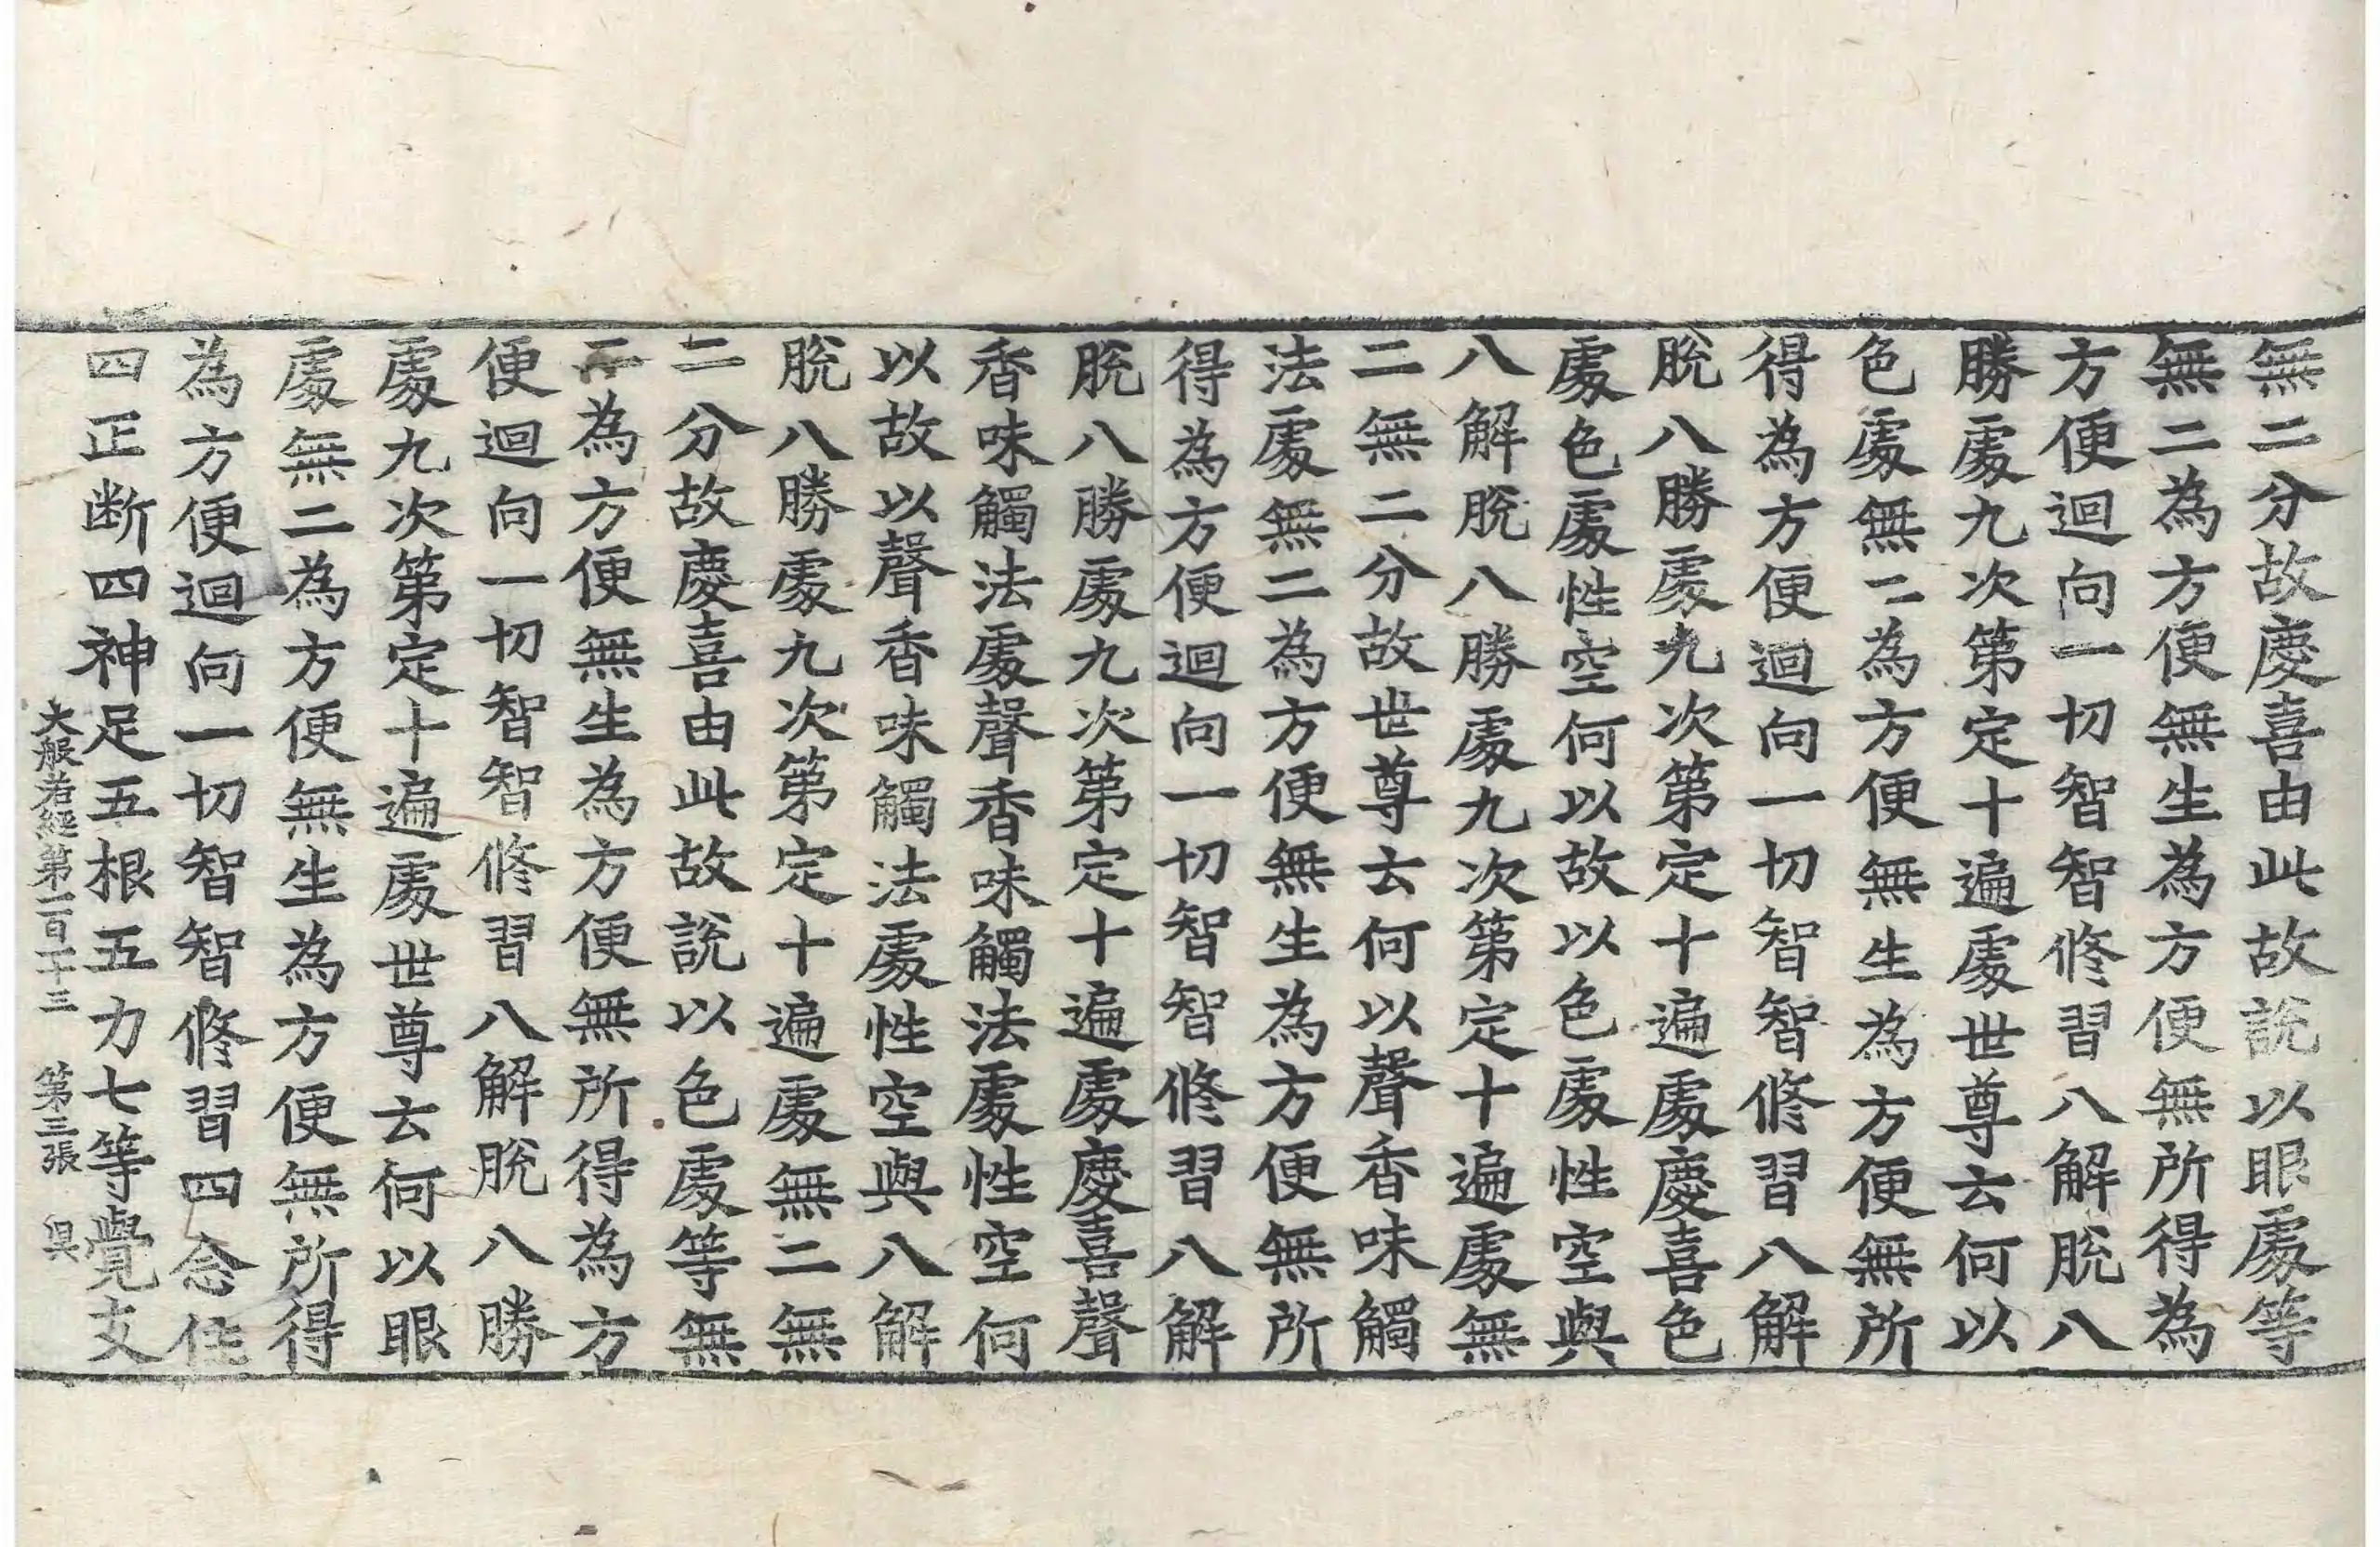 無二分故慶喜由此故說以眼處等
無二為方便無生為方便無所得為
方便迴向一切智智修習八解脫八
勝處九次第定十遍處世尊云何以
色處無二為方便無生為方便無所
得為方便迴向一切智智修習八解
脫八勝處九次第定十遍處慶喜色
處色處性空何以故以色處性空與
八解脫八勝處九次第定十遍處無
二無二分故世尊云何以聲香味觸
法處無二為方便無生為方便無所
得為方便迴向一切智智修習八解
脫八勝處九次第定十遍處慶喜聲
香味觸法處聲香味觸法處性空何
以故以聲香味觸法處性空與八解
脫八勝處九次第定十遍處無二無
二分故慶喜由此故說以色處等無
二為方便無生為方便無所得為方
便迴向一切智智修習八解脫八勝
處九次第定十遍處世尊云何以眼
處無二為方便無生為方便無所得
為方便迴向一切智智修習四念住
四正断四神足五根五力七等覺支
大般若經第一百一十三 第三張 昃